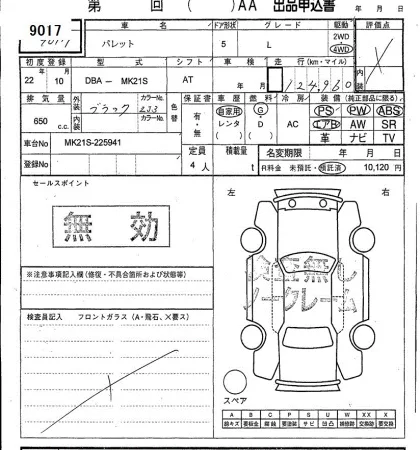 第 回 ( )AA 出品申込書 年 月 日
9017
車名 ドア形状 グレード 駆動 評価点
パレット 5 L 2WD 4WD
初度登録 型式 シフト 車検 走行(km・マイル) 内装
22年 10月 DBA－ MK21S AT 年 月 124,960
排気量 外装 ブラック カラーNo. ZJ3 色替 保証書 車歴 燃料 冷房 装備(純正部品に限る)
650 c.c. 内装 カラーNo. 有・無 自家用 レンタ G D AC PS PW ABS
エアB AW SR
革 ナビ TV
車台No MK21S-225941 定員 積載量 名変期限 年 月 日
登録No 4人 t R料金 未預託・預託済 10,120円
セールスポイント 左 右
無効
検査無し
ノークレーム
※注意事項記入欄(修復・不具合箇所および状態等)
検査員記入 フロントガラス(A・飛石、X要ス)
スペア
A B C P S U W X XX
線キズ 要板金 腐蝕 要塗装 サビ 凹凸 補修跡 交換 要交換